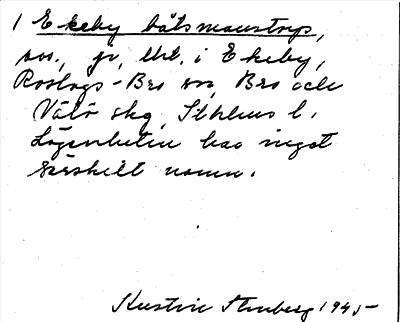 1 Ekeby båtsmanstrp,
sos., på Ekeby,
Roslags-Bro sn, Bro och
Vätö skg, Sthlms l.
Lägenheten har inget
särskilt namn.
Stenberg 1945